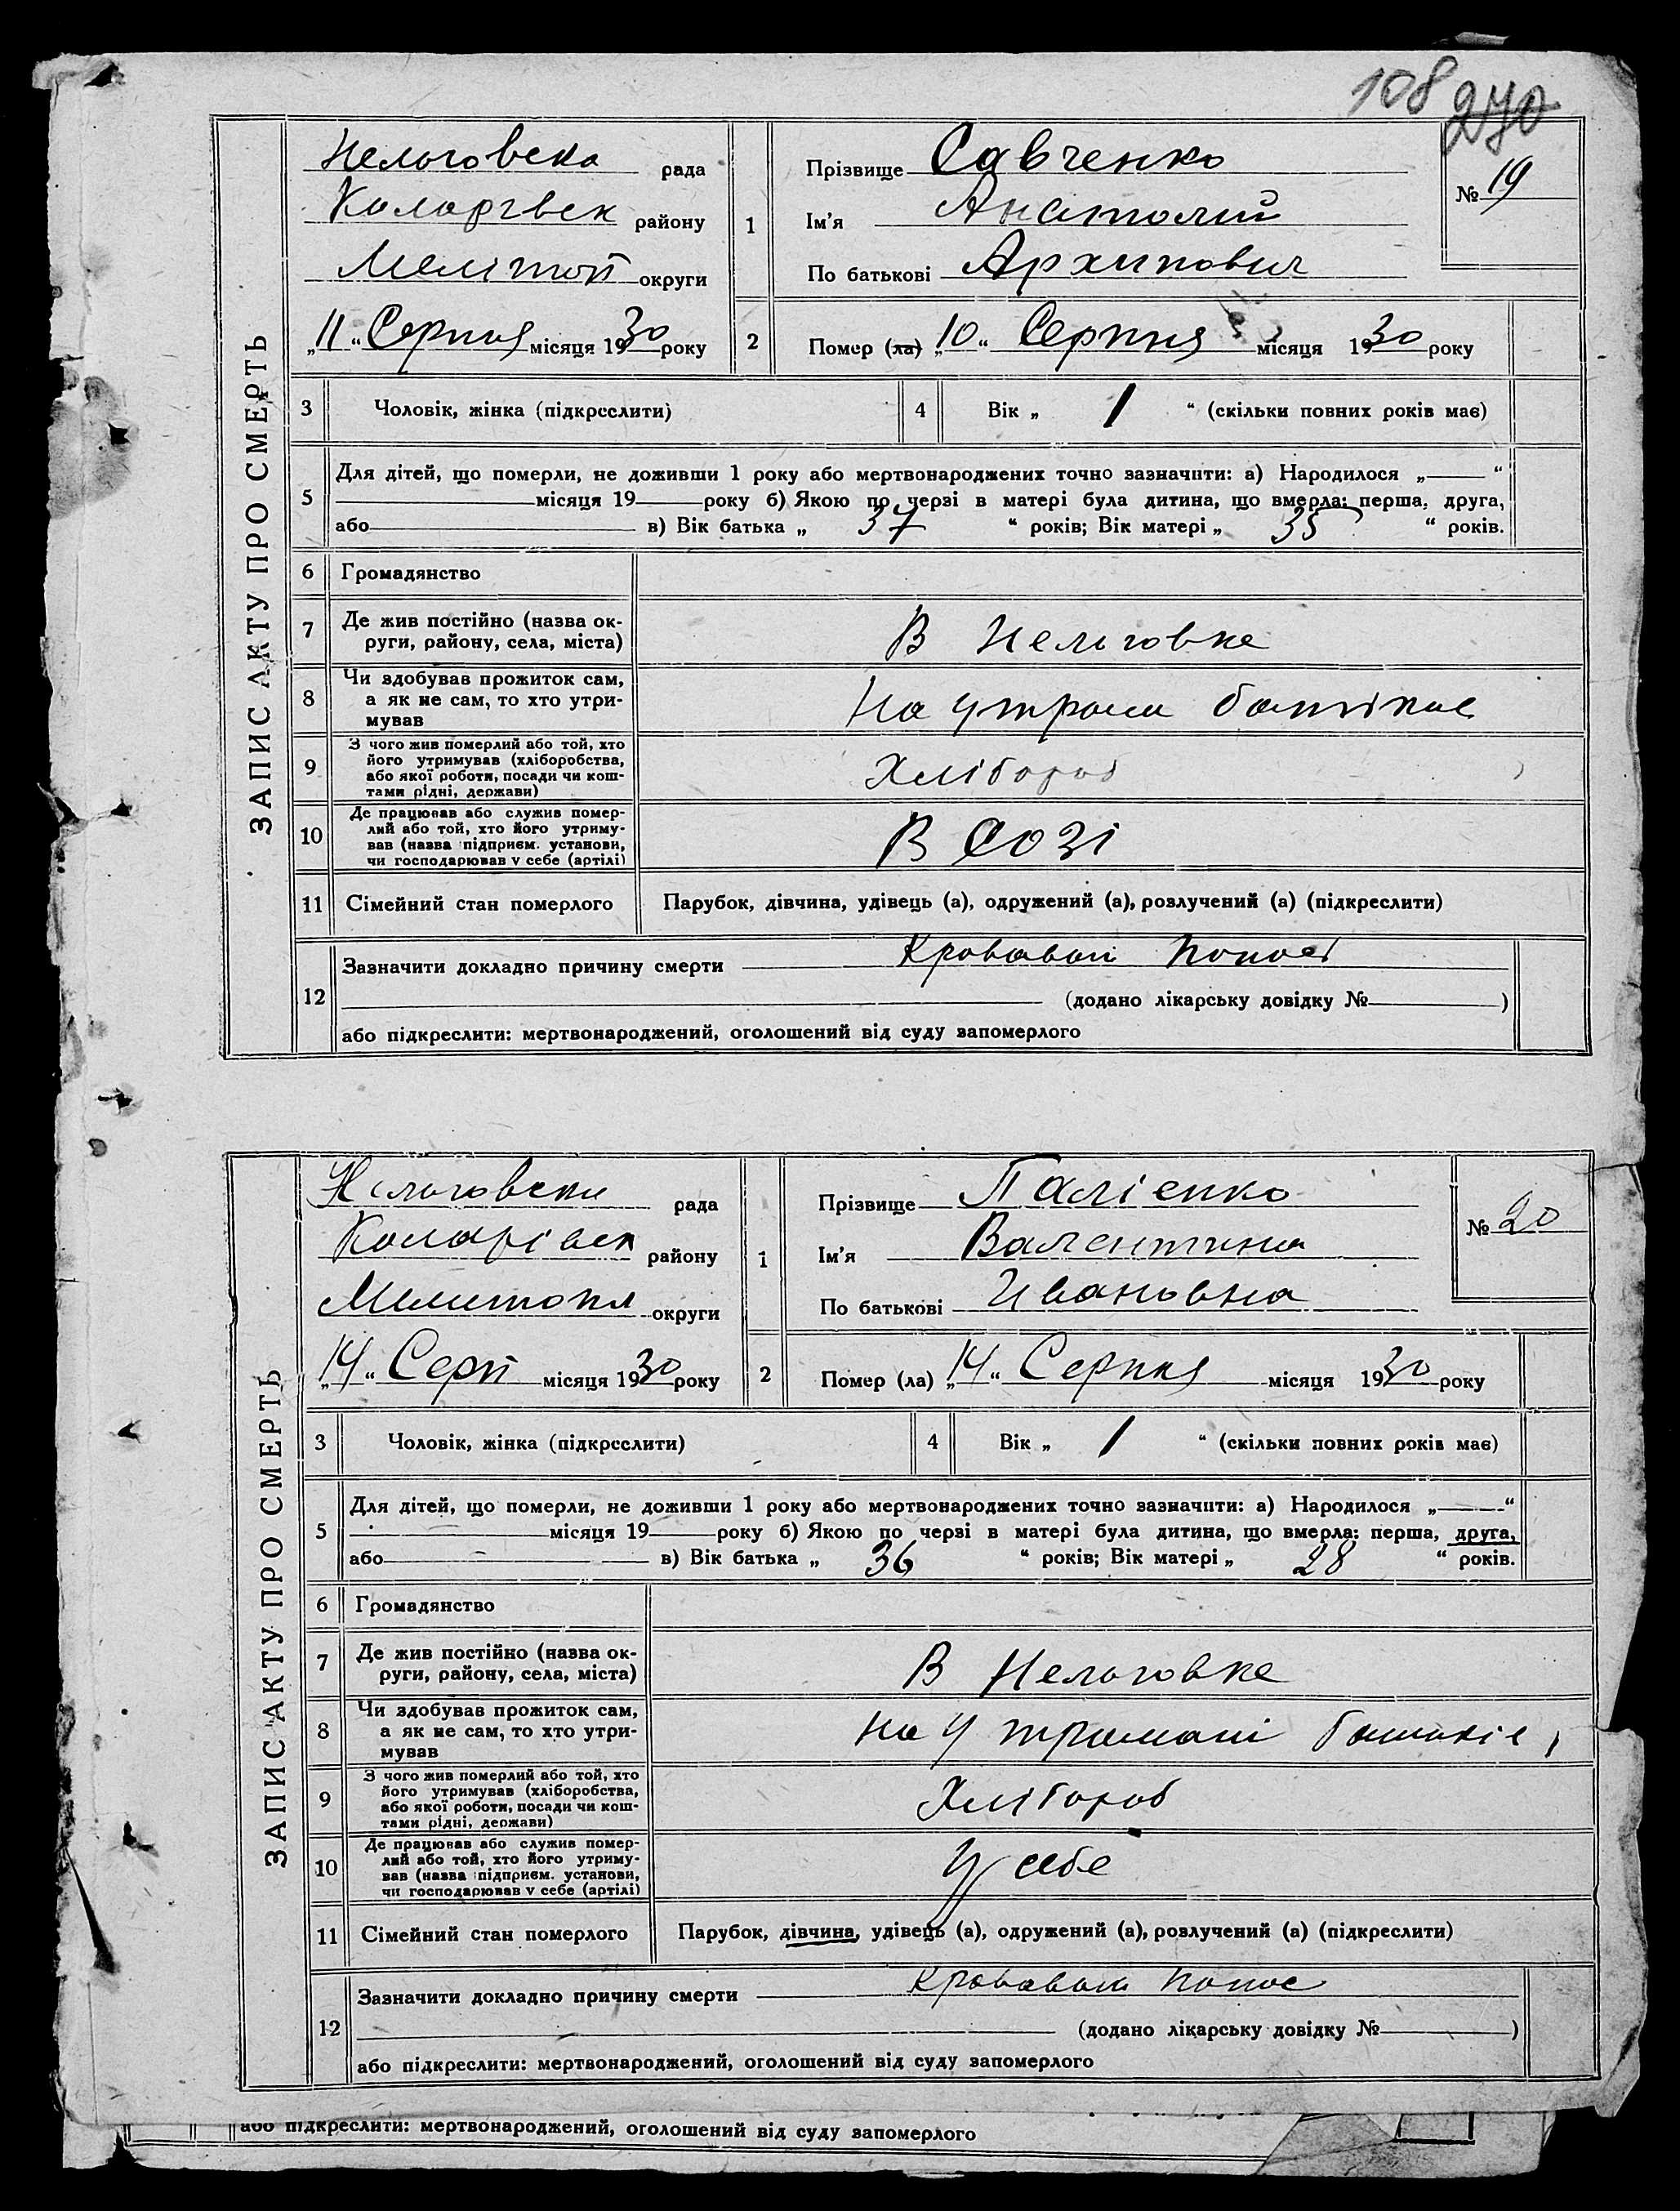 108 270
ЗАПИС АКТУ ПРО СМЕРТЬ
Нельговска рада
Коларівск району
Мелітоп округи
„11“ Серпня місяця 1930 року
1
Прізвище Савченко
Ім’я Анатолий
По батькові Архипович
№ 19
2
Помер (ла) „10“ Серпня місяця 1930 року
3 Чоловік, жінка (підкреслити)
4 Вік „ 1 “ (скільки повних років має)
5
Для дітей, що померли, не доживши 1 року або мертвонароджених точно зазначити: а) Народилося „ “
місяця 19 року б) Якою по черзі в матері була дитина, що вмерла: перша, друга,
або в) Вік батька „ 37 “ років; Вік матері „ 35 “ років.
6 Громадянство
7 Де жив постійно (назва ок-
руги, району, села, міста)
В Нельговке
8 Чи здобував прожиток сам,
а як не сам, то хто утри-
мував
На утрим батьків
9 З чого жив померлий або той, хто
його утримував (хліборобства,
або якої роботи, посади чи кош-
тами рідні, держави)
Хлібороб
10 Де працював або служив помер-
лий або той, хто його утриму-
вав (назва підприєм. установи,
чи господарював у себе (артілі)
В СОЗі
11 Сімейний стан померлого Парубок, дівчина, удівець (а), одружений (а), розлучений (а) (підкреслити)
12 Зазначити докладно причину смерти Кровавый понос
(додано лікарську довідку № )
або підкреслити: мертвонароджений, оголошений від суду запомерлого
ЗАПИС АКТУ ПРО СМЕРТЬ
Нельговска рада
Коларівск району
Мелитопл округи
„14“ Серп місяця 1930 року
1
Прізвище Палієнко
Ім’я Валентина
По батькові Ивановна
№ 20
2
Помер (ла) „14“ Серпня місяця 1930 року
3 Чоловік, жінка (підкреслити)
4 Вік „ 1 “ (скільки повних років має)
5
Для дітей, що померли, не доживши 1 року або мертвонароджених точно зазначити: а) Народилося „ “
місяця 19 року б) Якою по черзі в матері була дитина, що вмерла: перша, друга,
або в) Вік батька „ 36 “ років; Вік матері „ 28 “ років.
6 Громадянство
7 Де жив постійно (назва ок-
руги, району, села, міста)
В Нельговке
8 Чи здобував прожиток сам,
а як не сам, то хто утри-
мував
На утримані батьків
9 З чого жив померлий або той, хто
його утримував (хліборобства,
або якої роботи, посади чи кош-
тами рідні, держави)
Хлібороб
10 Де працював або служив помер-
лий або той, хто його утриму-
вав (назва підприєм. установи,
чи господарював у себе (артілі)
У себе
11 Сімейний стан померлого Парубок, дівчина, удівець (а), одружений (а), розлучений (а) (підкреслити)
12 Зазначити докладно причину смерти Кровавый понос
(додано лікарську довідку № )
або підкреслити: мертвонароджений, оголошений від суду запомерлого
або підкреслити: мертвонароджений, оголошений від суду запомерлого